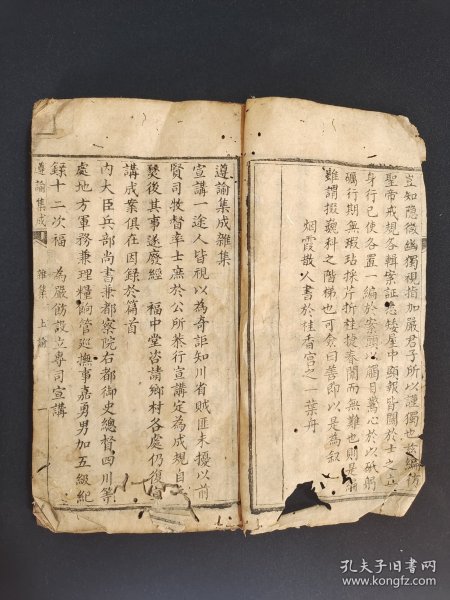 豈知隱微幽獨視指加嚴君子所以謹獨也
聖帝戒規各輯案証
身行已使各置一編於案頭觸目驚心於以砥躬
礪行期無瑕玷採芹折桂捷春闈而無難也則是
雖謂掇巍科之階梯也可僉曰善即以是為叙
烟霞散人書於桂香宮之一葉舟
遵諭集成雜集
宣講一途人皆視以為奇詎知川省賊匪未擾以前
賢司牧督率士庶於公所恭行宣講定為成規自
燹後其事遂廢經 福中堂咨請鄉村各處仍復宣
講成案俱在因錄於篇首
內大臣兵部尚書兼都察院右都御史總督四川等
處地方軍務兼理糧餉管巡撫事嘉勇男加五級紀
錄十二次福 為嚴飭設立專司宣講
遵諭集成
雜集 上諭 一
孔夫子旧书网
www.kongfz.com